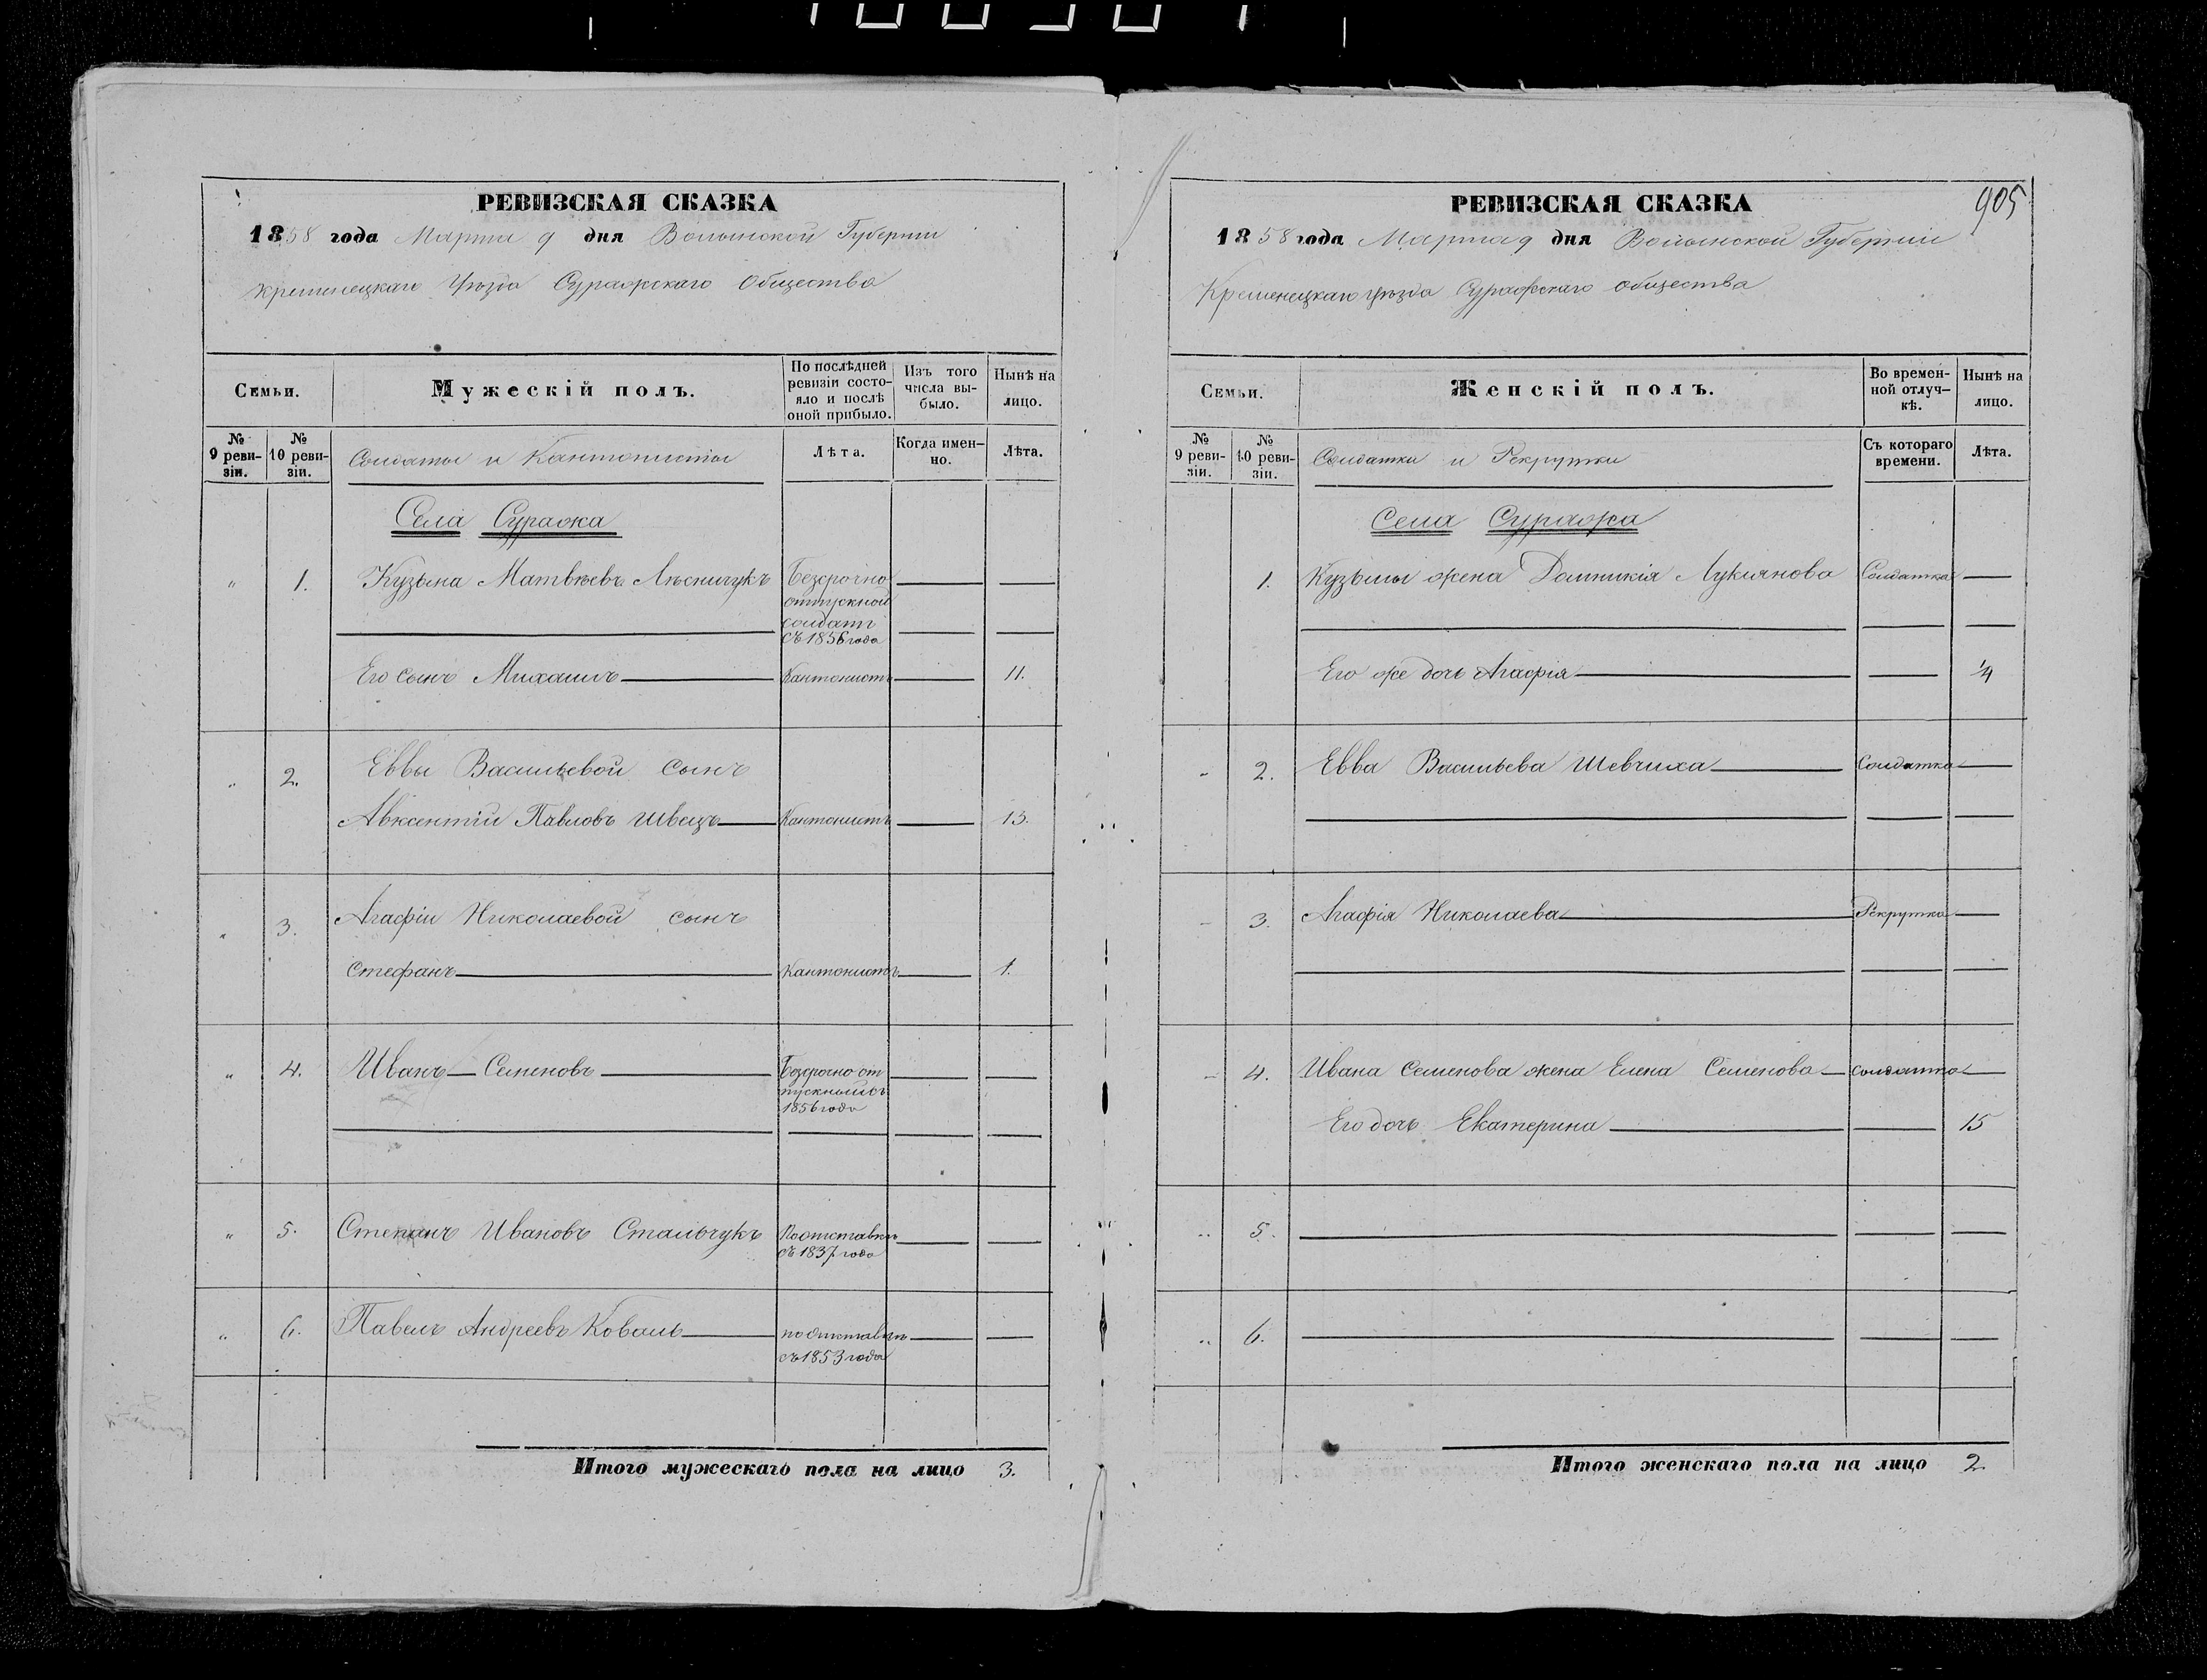 РЕВИЗСКАЯ СКАЗКА
1858 года Марта 9 дня Волынской Губернии
Кременецкаго Уѣзда Суражскаго Общества
Семьи.
Мужескій полъ.
По послѣдней ревизіи состо-
яло и послѣ
оной прибыло.
Изъ того
числа вы-
было.
Нынѣ на
лицо.
№
9 реви-
зіи.
№
10 реви-
зіи.
Солдаты и Кантонисты
Лѣта.
Когда имен-
но.
Лѣта.
Села Суража
„ 1. Кузьма Матвѣевъ Лѣсничукъ Безсрочно
отпускной
солдатъ
съ 1856 года
Его сынъ Михаилъ Кантонистъ 11.
„ 2. Еввы Васильевой сынъ
Авксентій Павловъ Швецъ Кантонистъ 13.
„ 3. Агафіи Николаевой сынъ
Стефанъ Кантонистъ 1.
„ 4. Иванъ Семеновъ Безсрочно от
пускной съ
1856 года
„ 5. Степанъ Ивановъ Стальчукъ По отставкѣ
съ 1837 года
„ 6. Павелъ Андреевъ Коваль по отставкѣ
съ 1853 года
Итого мужескаго пола на лицо 3.
905
РЕВИЗСКАЯ СКАЗКА
1858 года Марта 9 дня Волынской Губерніи
Кременецкаго уѣзда Суражскаго общества
Семьи.
Женскій полъ.
Во времен-
ной отлуч-
кѣ.
Нынѣ на
лицо.
№
9 реви-
зіи.
№
10 реви-
зіи.
Солдатки и Рекрутки
Съ котораго
времени.
Лѣта.
Села Суража
1. Кузьмы жена Домникія Лукіянова Солдатка
Его же дочь Агафія 14
„ 2. Евва Васильева Шевчиха Солдатка
„ 3. Агафія Николаева Рекрутка
„ 4. Ивана Семенова жена Елена Семенова солдатка
Его дочь Екатерина 15
„ 5.
„ 6.
Итого женскаго пола на лицо 2